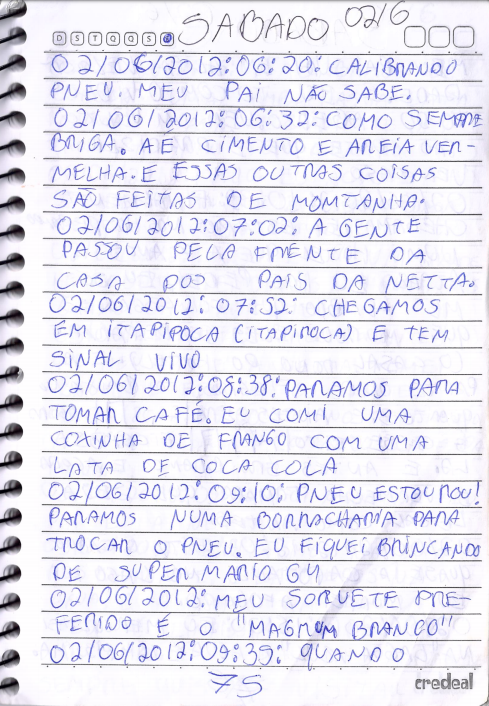 SABADO 02/6
D S T Q Q S
02/06/2012:06:20: CALIBRANDO
PNEU. MEU PAI NÃO SABE.
02/06/2012:06:32: COMO SEMPRE
BRIGA. ATÉ CIMENTO E AREIA VER-
MELHA. E ESSAS OUTRAS COISAS
SÃO FEITAS DE MOMTANHA.
02/06/2012:07:02: A GENTE
PASSOU A PELA FRENTE DA
CASA DOS PAIS DA NETTA.
02/06/2012:07:52: CHEGAMOS
EM ITAPIPOCA (ITAPIPOCA) E TEM
SINAL VIVO
02/06/2012:08:38: PARAMOS PARA
TOMAR CAFÉ. EU COMI UMA
COXINHA DE FRANGO COM UMA
LATA DE COCA COLA
02/06/2012:09:10: PNEU ESTOUROU!
PARAMOS NUMA BORRACHARIA PARA
TROCAR O PNEU. EU FIQUEI BRINCANDO
DE SUPER MARIO 64
02/06/2012: MEU SORVETE PRE-
FERIDO É O "MAGNUM BRANCO"
02/06/2012:09:39: QUANDO O
75
credeal